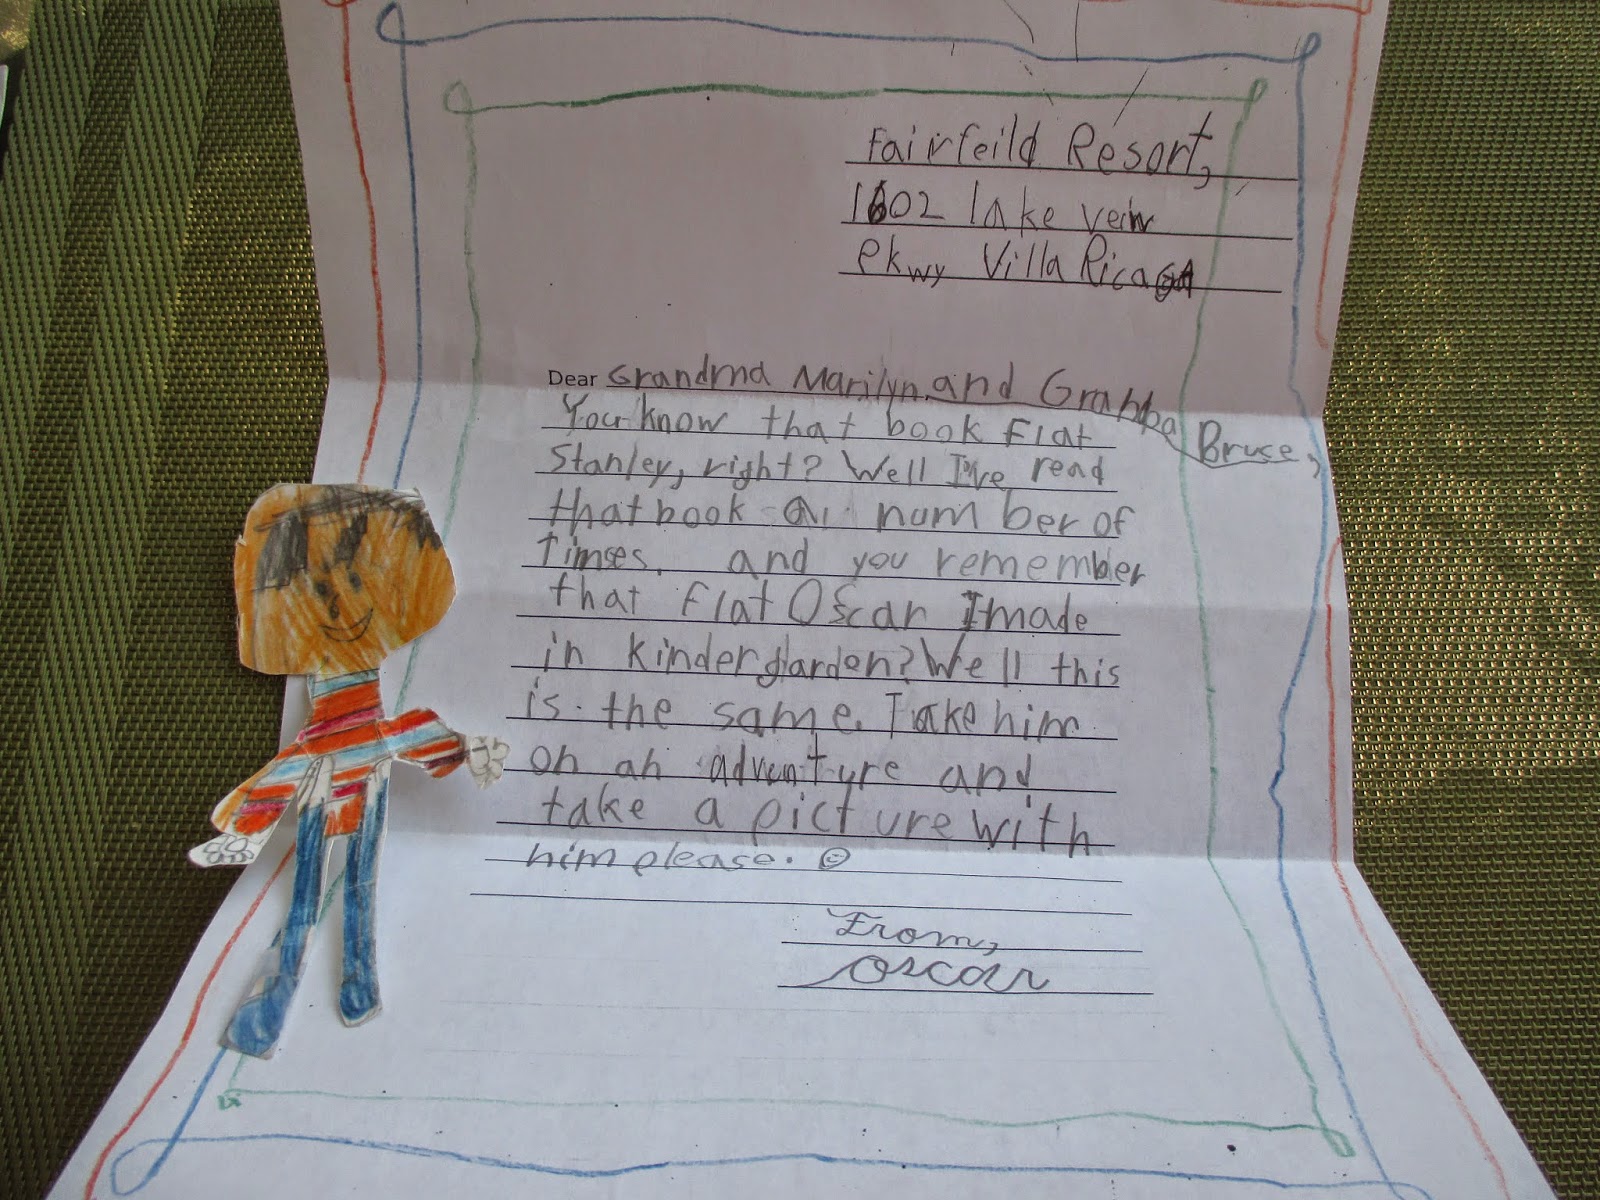 Fairfeild Resort,
1602 lake veiw
Pkwy Villa Rica GA
Dear Grandma Marilyn and Grabba Bruse,
You know that book Flat
Stanley, right? Well I've read
that book a number of
times. and you remember
that Flat Oscar I made
in kindergarden? Well this
is the same. Take him
on an adventure and
take a picture with
him please. ☺
From,
Oscar